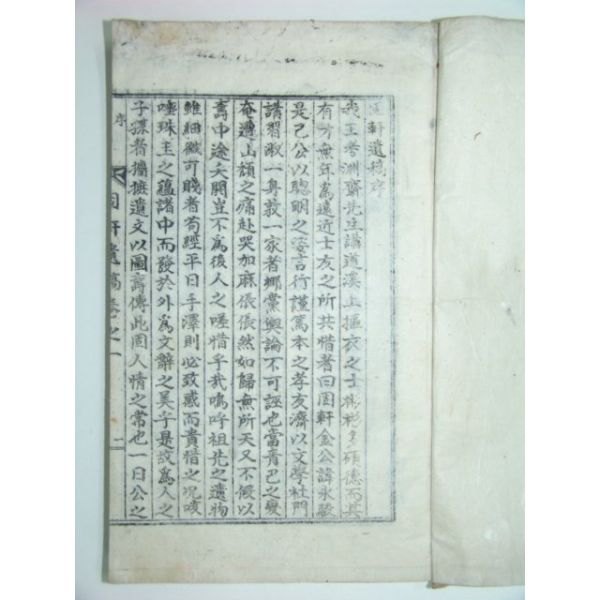 軒遺稿序
我王考淵齋先生講道溪上摳衣之士彬彬多碩德而其
有才無年爲遠近士友之所共惜者曰園軒金公諱永
是已公以聰明之姿言行謹篤本之孝友濟以文學杜門
講習淑一身敎一家者鄕黨輿論不可誣也當靑巴之變
奄遭山頹之痛赴哭加麻倀倀然如歸無所天又不假以
壽中途夭閼豈不爲後人之嗟惜乎哉嗚呼祖先之遺物
雖細微可賤者苟經平日手澤則必致感而貴惜之况咳
唾珠玉之蘊諸中而發於外爲文辭之美乎是故爲人之
子孫者攟摭遺文以圖壽傳此固人情之常也一日公之
序
園軒遺稿卷之一
二